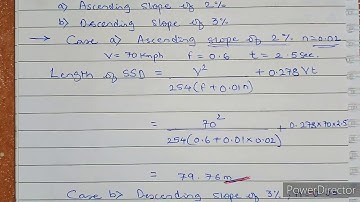 a) Ascending slope of 2%
b) Descending slope of 3%
→ Case a) Ascending slope of 2% n=0.02
V = 70kmph f = 0.6 t = 2.5sec.
Length of SSD = V² / 254(f+0.01n) + 0.278Vt
= 70² / 254(0.6+0.01×0.02) + 0.278×70×2.5
= 79.76m
Case b) Descending slope of 3%
PowerDirector